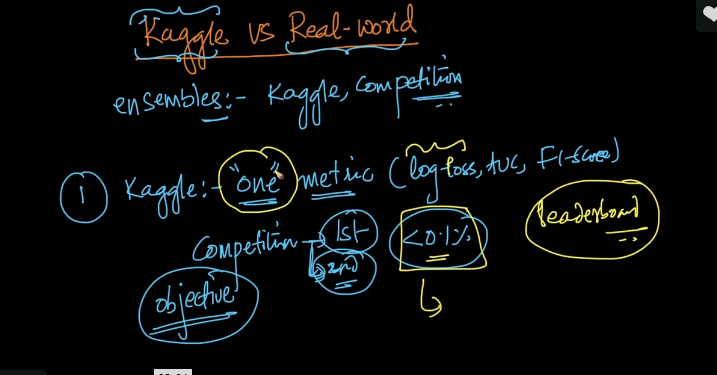 Kaggle vs Real-world
ensembles:- Kaggle, competition
1 Kaggle:- "one" metric (log-loss, AUC, F1-score)
Competition → 1st <0.1% leaderboard
2nd
objective